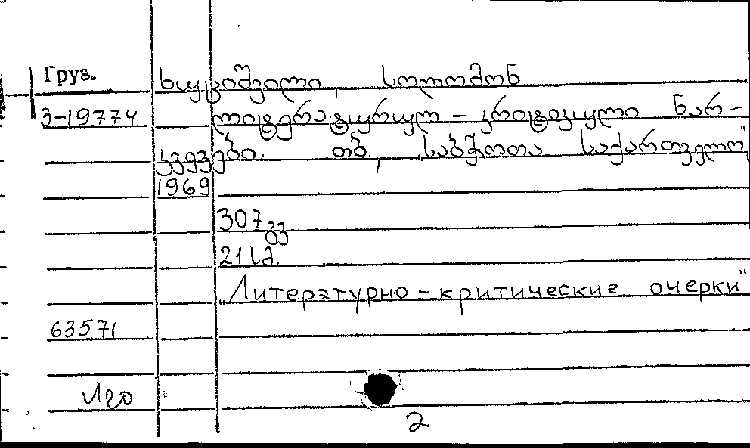 Груз. ხუციშვილი, სოლომონ
3-19774 ლიტერატურულ-კრიტიკული ნარ-
კვევები. თბ., „საბჭოთა საქართველო"
1969
307 გვ
21 სმ.
„Литературно-критические очерки"
63571
2